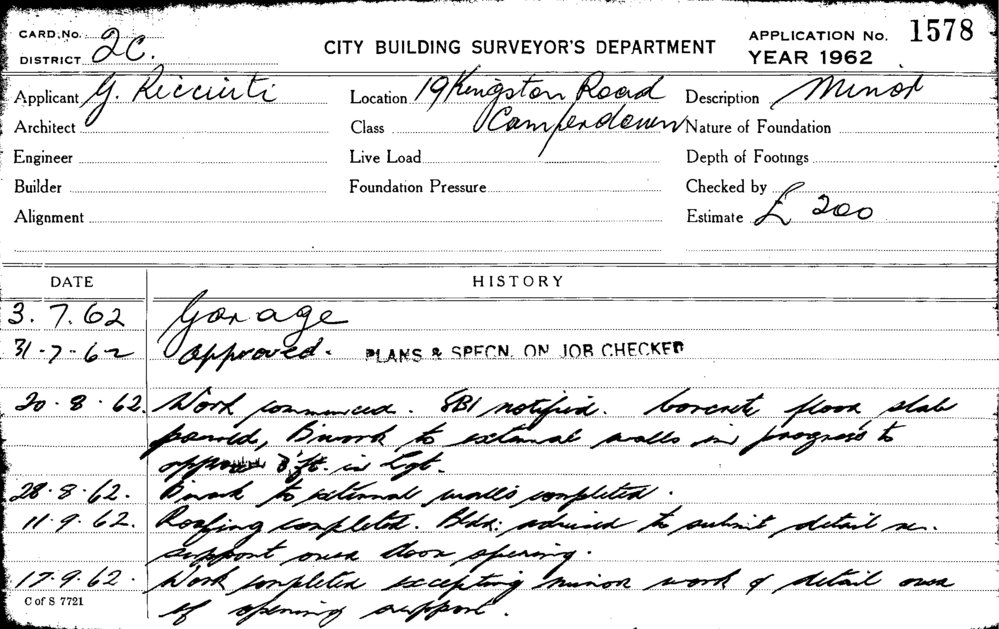 CARD. No.
DISTRICT 2C.
CITY BUILDING SURVEYOR'S DEPARTMENT
APPLICATION No. 1578
YEAR 1962
Applicant G. Ricciuti Location 19 Kingston Road Description Minor
Architect Class Camperdown Nature of Foundation
Engineer Live Load Depth of Footings
Builder Foundation Pressure Checked by
Alignment Estimate £ 200
DATE HISTORY
3.7.62 Garage
31-7-62 Approved. PLANS & SPECN. ON JOB CHECKED
20.8.62. Work commenced. SBI notified. Concrete floor slab
poured, B'work to external walls in progress to
approx ft. in hgt.
28.8.62. B'work to external walls completed.
11.9.62. Roofing completed. Bldr: advised to submit detail re.
support over door opening.
17.9.62. Work completed excepting minor work & detail over
of opening support.
C of S 7721